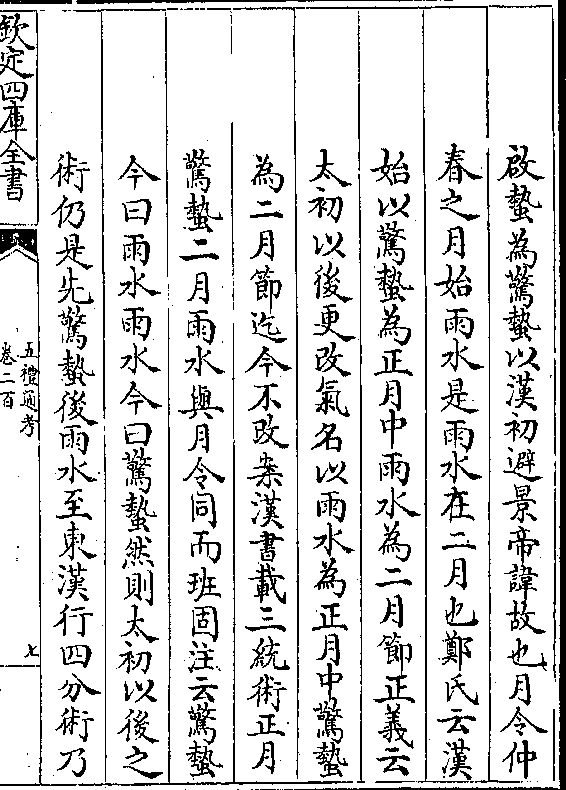 啟蟄為驚蟄以漢初避景帝諱故也月令仲
春之月始雨水是雨水在二月也鄭氏云漢
始以驚蟄為正月中雨水為二月節正義云
太初以後更改氣名以雨水為正月中驚蟄
為二月節迄今不改案漢書載三統術正月
驚蟄二月雨水與月令同而班固注云驚蟄
今曰雨水雨水今曰驚蟄然則太初以後之
術仍是先驚蟄後雨水至東漢行四分術乃
欽定四庫全書
五禮通考
卷二百
七